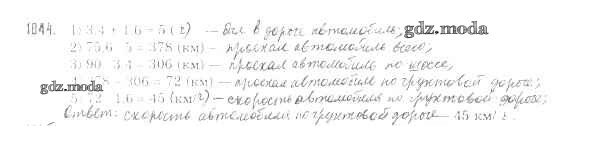 1044. 1) 3,4 + 1,6 = 5 (ч) — был в дороге автомобиль;
gdz.moda
2) 75,6 · 5 = 378 (км) — проехал автомобиль всего;
3) 90 · 3,4 = 306 (км) — проехал автомобиль по шоссе;
gdz.moda
78 − 306 = 72 (км) — проехал автомобиль по грунтовой дороге;
5) 72 : 1,6 = 45 (км/ч) — скорость автомобиля по грунтовой дороге;
Ответ: скорость автомобиля по грунтовой дороге — 45 км/ч.